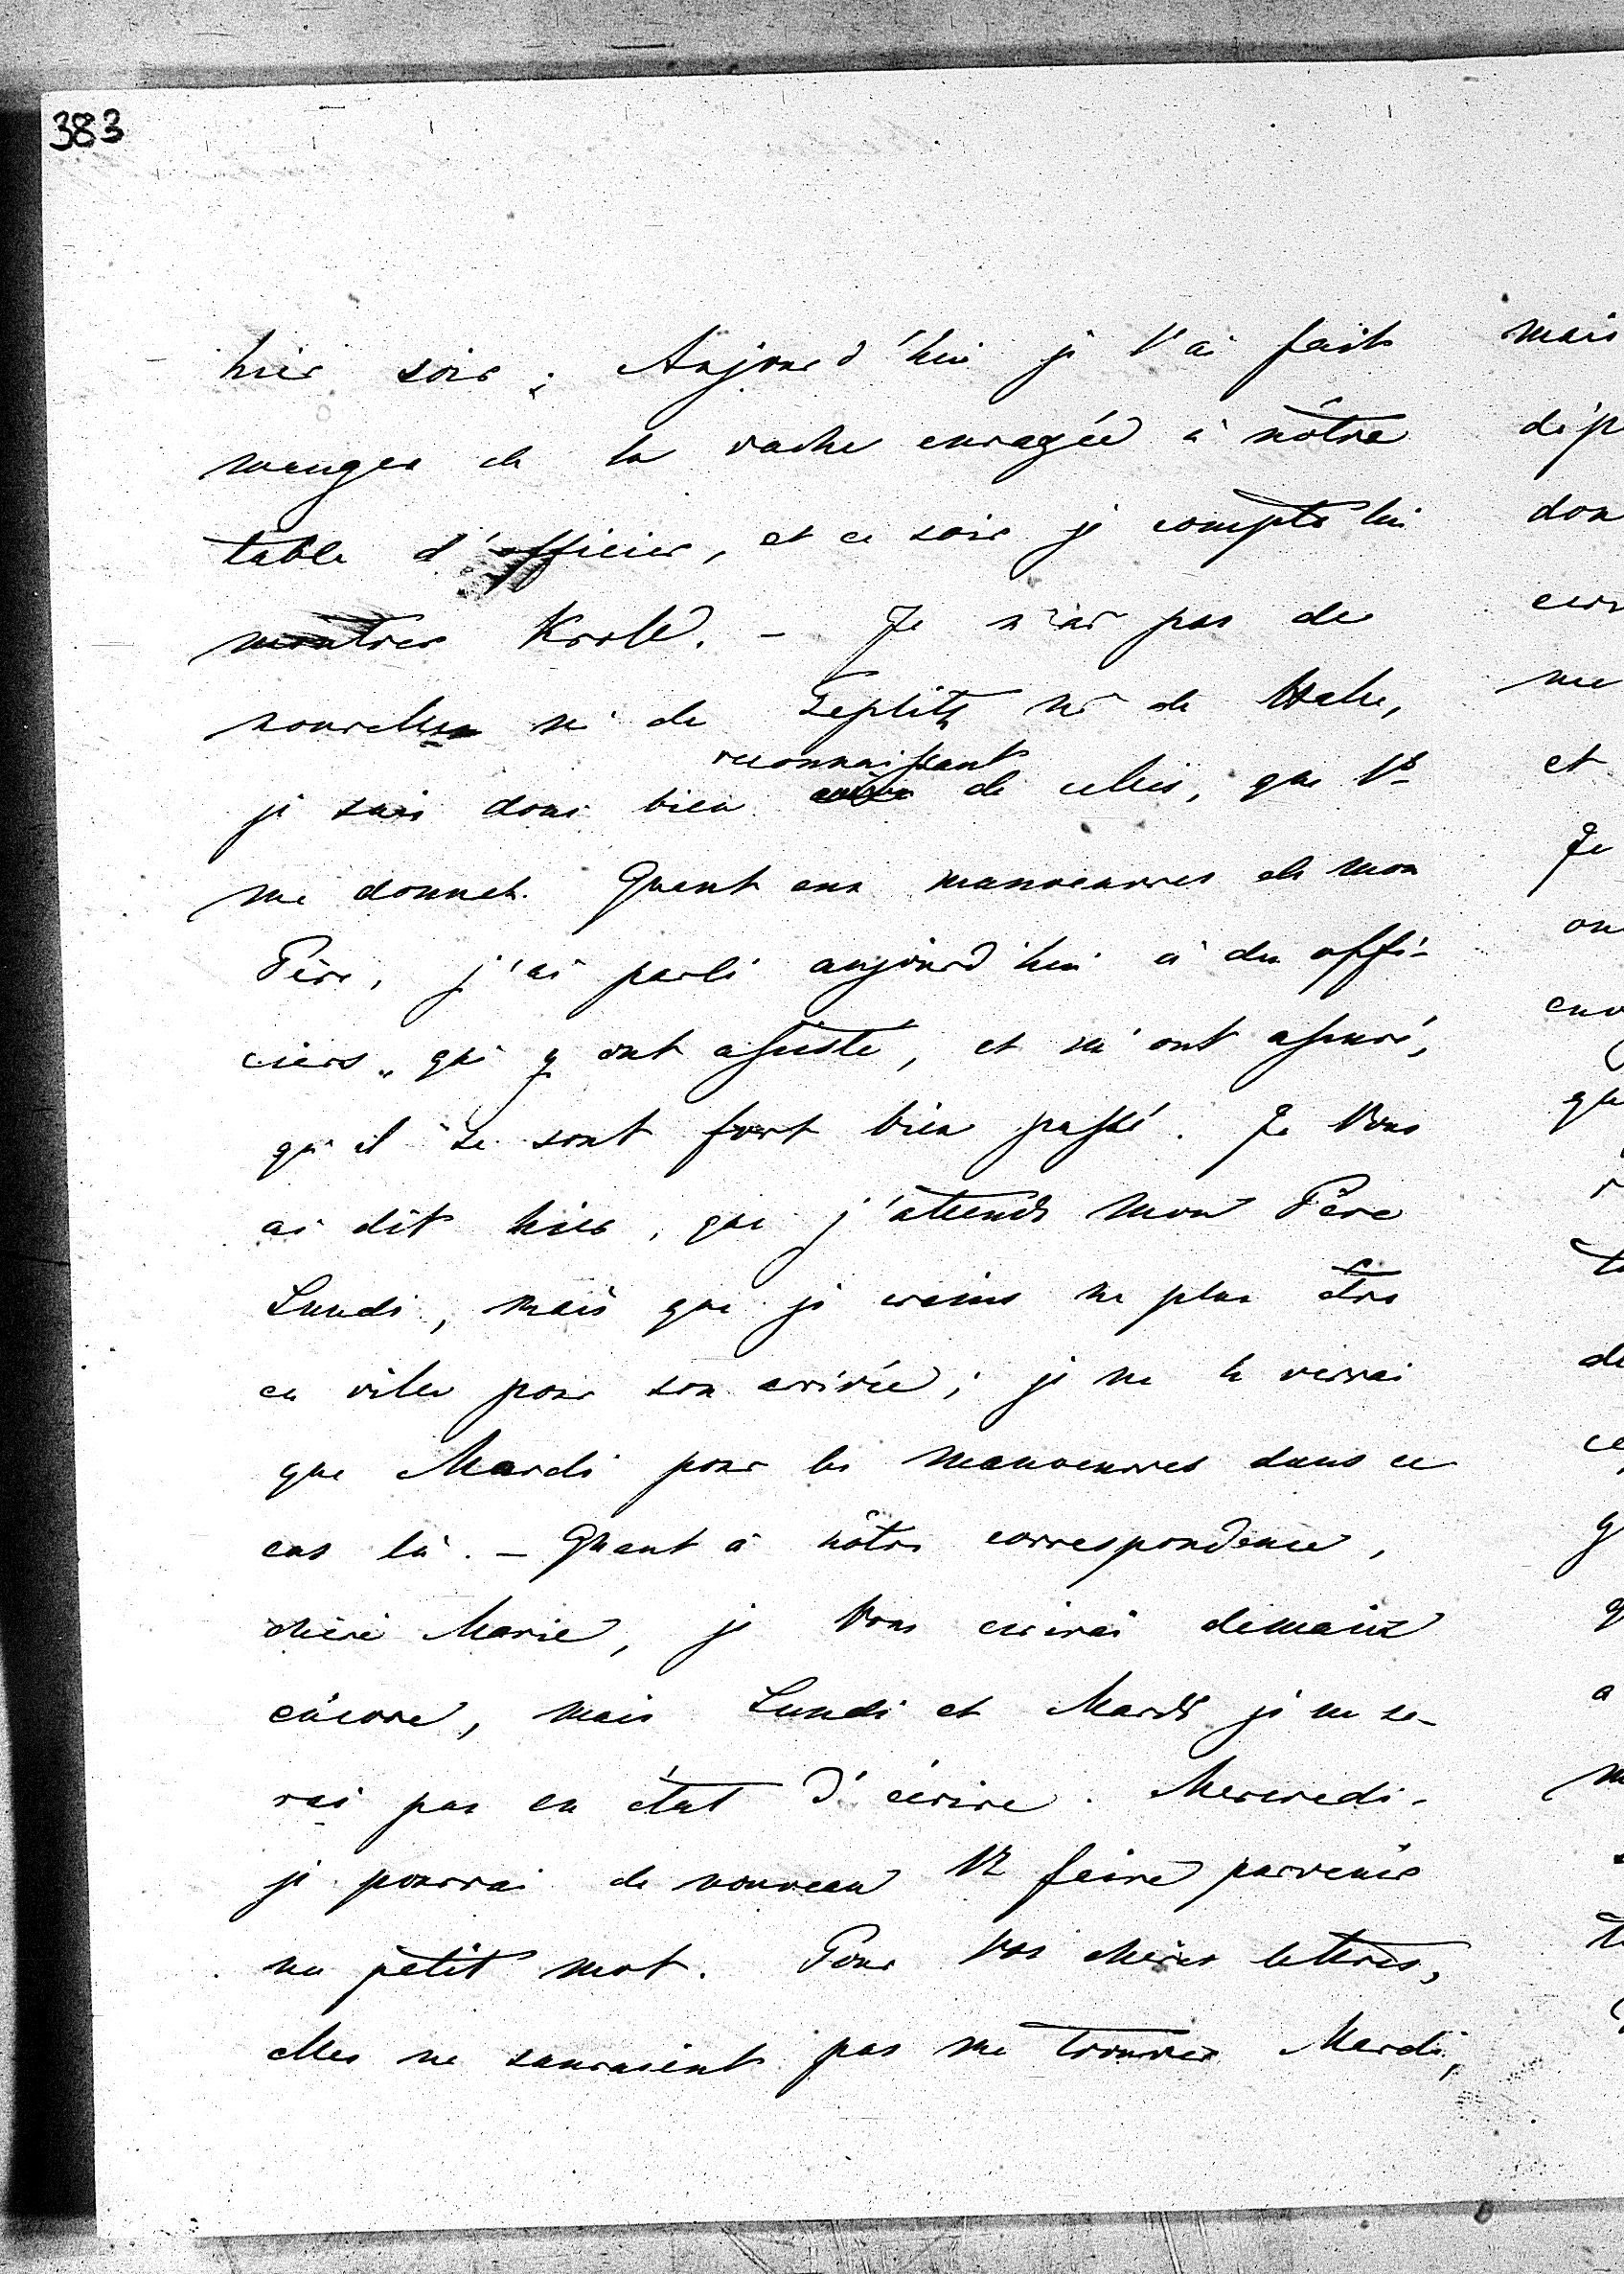 383
hier soir ; Aujourd'hui je l'ai fait
manger de la vache enragée à nôtre
table d'officier, et ce soir je compte lui
montrer Kroll. – Je n'ai pas de
nouvelles ni de Teplitz ni de
reconnaissant
je suis donc bien de celles, que Vs
me donnez. Quant aux manoeuvres de mon
Père, j'ai parlé aujourd'hui à des offi-
ciers, qui y ont assisté, et m'ont assuré,
qu'il se sont fort bien passé. Je Vous
ai dit hier, que j'attends mon Père
Lundi, mais que je crains ne plus être
en ville pour son arrivée ; je ne le verrai
que Mardi pour les manoeuvres dans ce
cas là. – Quant à nôtre correspondence,
chère Marie, je Vous écrirai demain
encore, mais Lundi et Mardi je ne se-
rai pas en état d'écrire. Mercredi
je pourrai de nouveau Vs faire parvenir
un petit mot. Pour Vos chères lettres,
elles ne sauraient pas me trouver Mardi,
mais
dép
don
me
et
Je
on